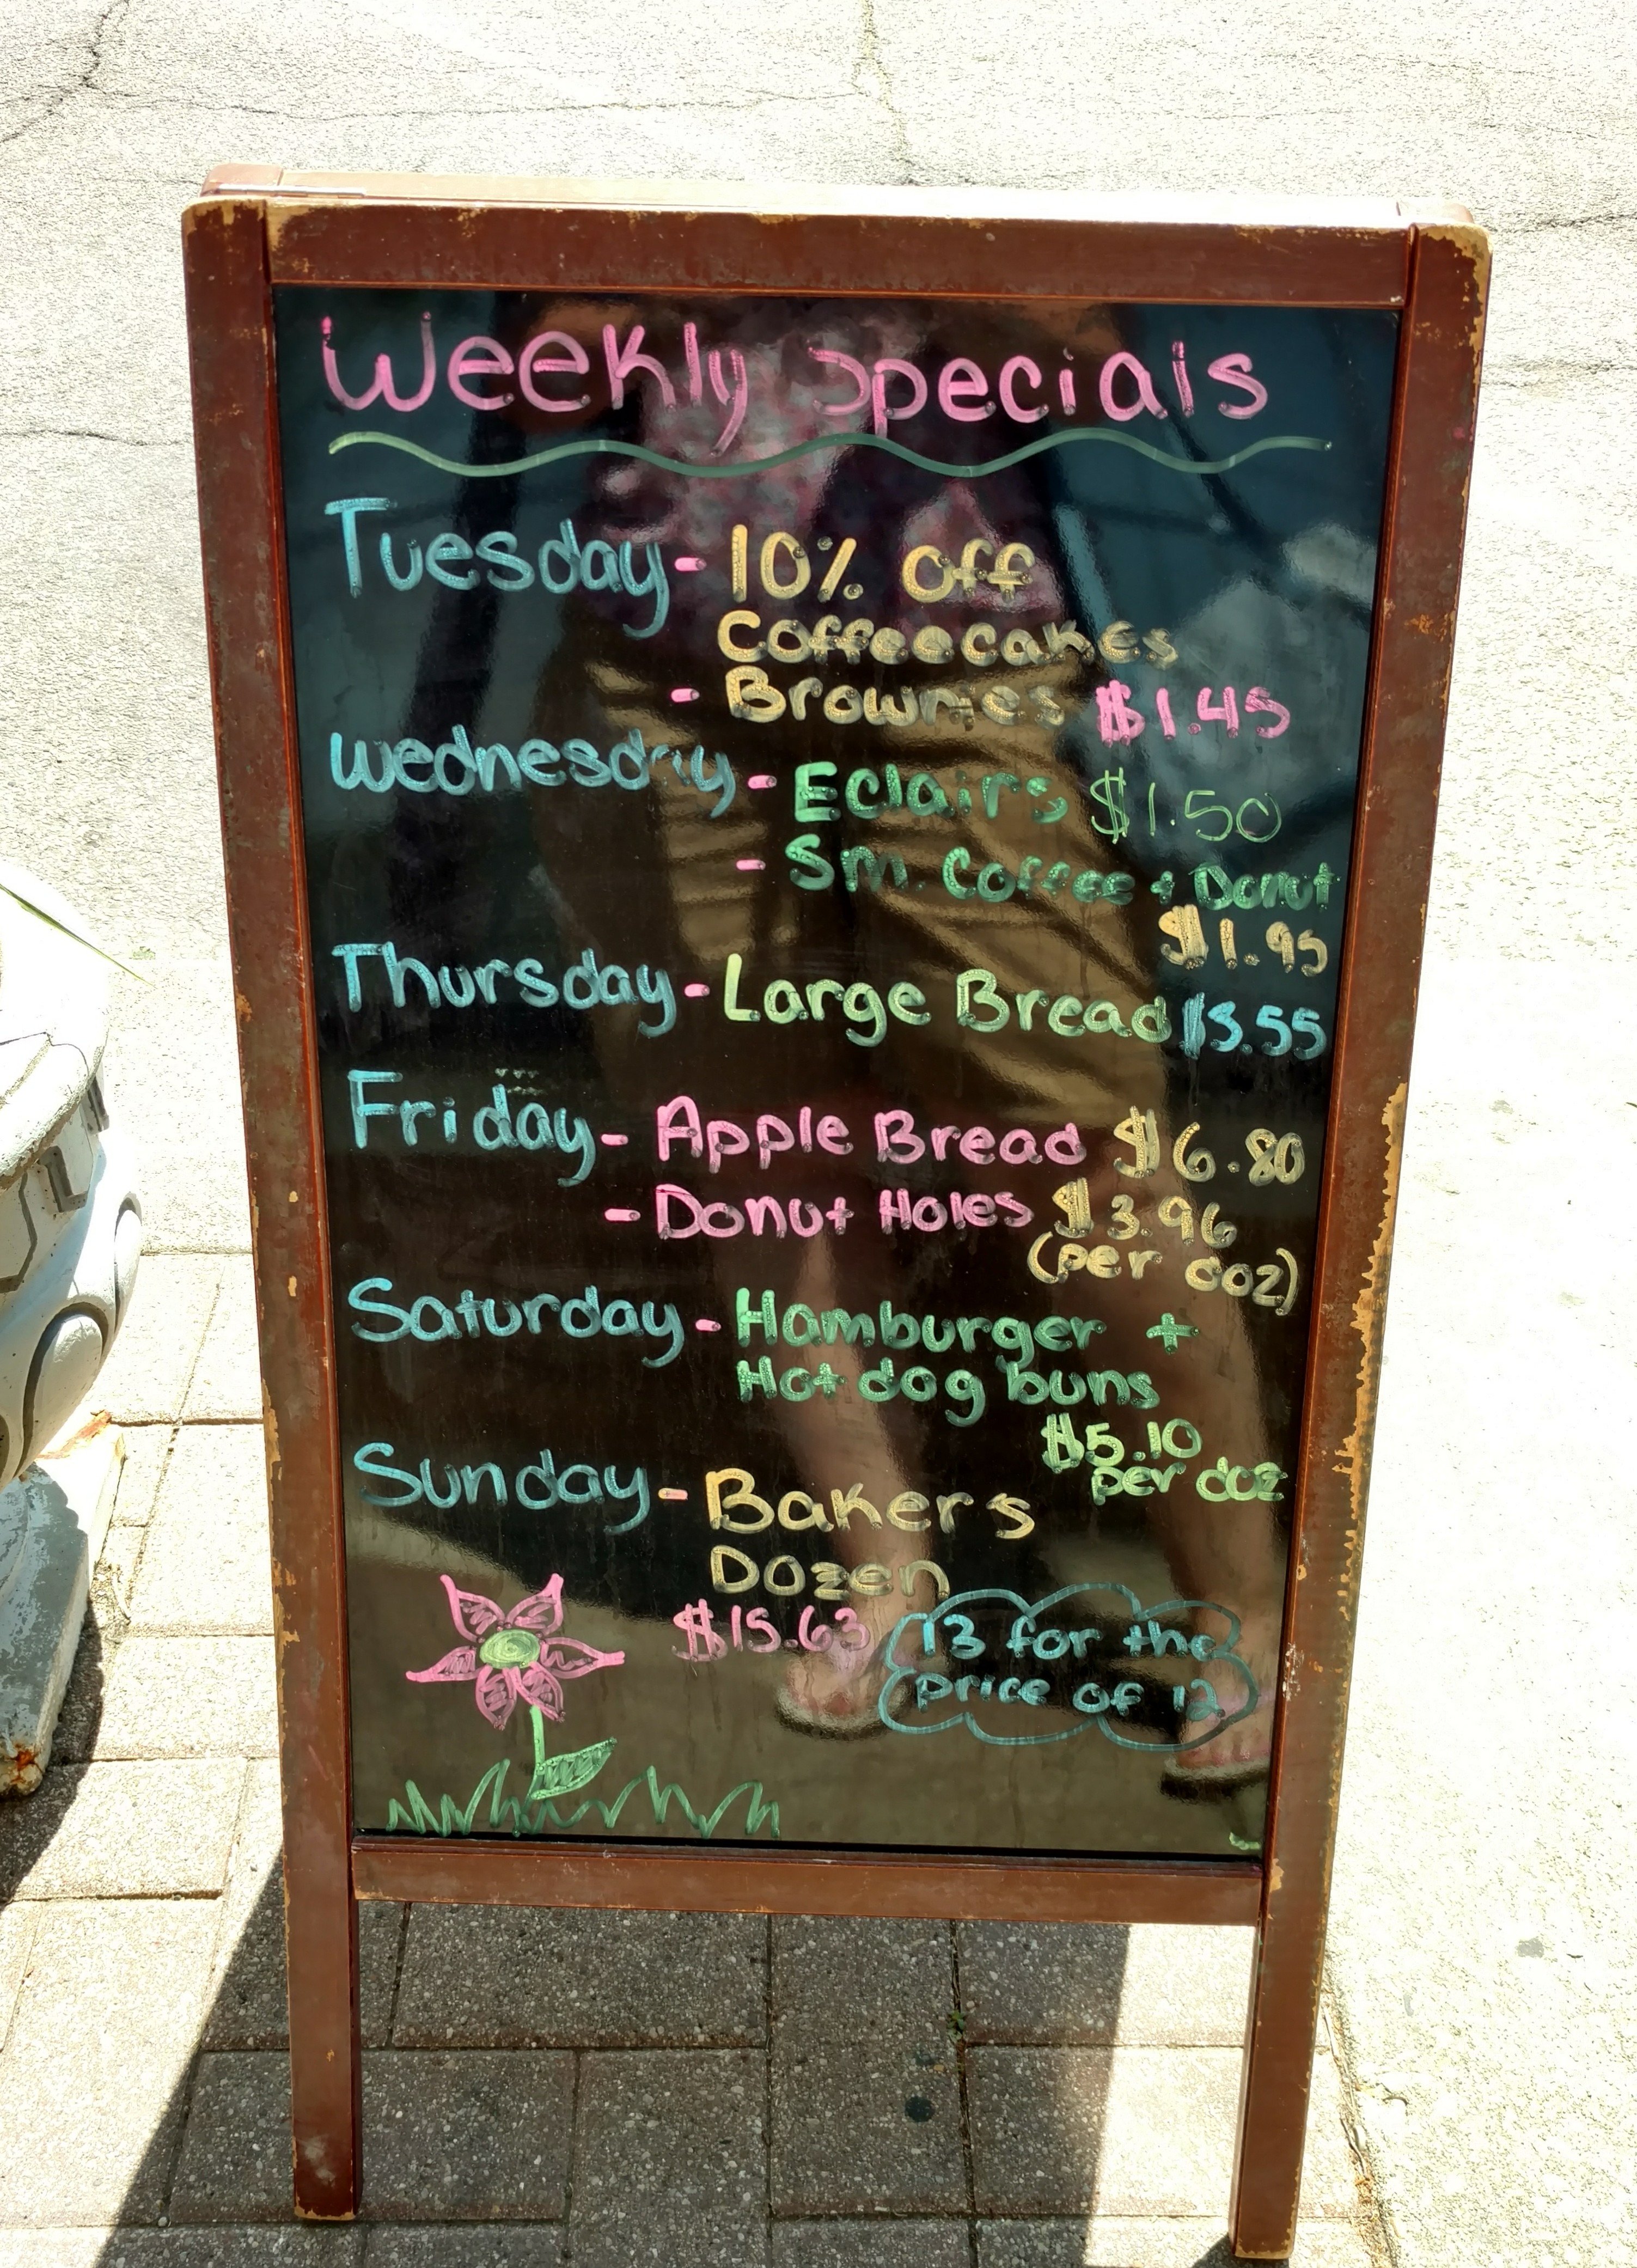 Weekly Specials
Tuesday - 10% off
Coffeecakes
- Brownies $1.45
Wednesday - Eclairs $1.50
- Sm. Coffee + Donut
$1.95
Thursday - Large Bread $3.55
Friday - Apple Bread $6.80
- Donut Holes $3.96
(per doz)
Saturday - Hamburger +
Hot dog buns
$5.10
per doz
Sunday - Bakers
Dozen
$15.63
13 for the
price of 12